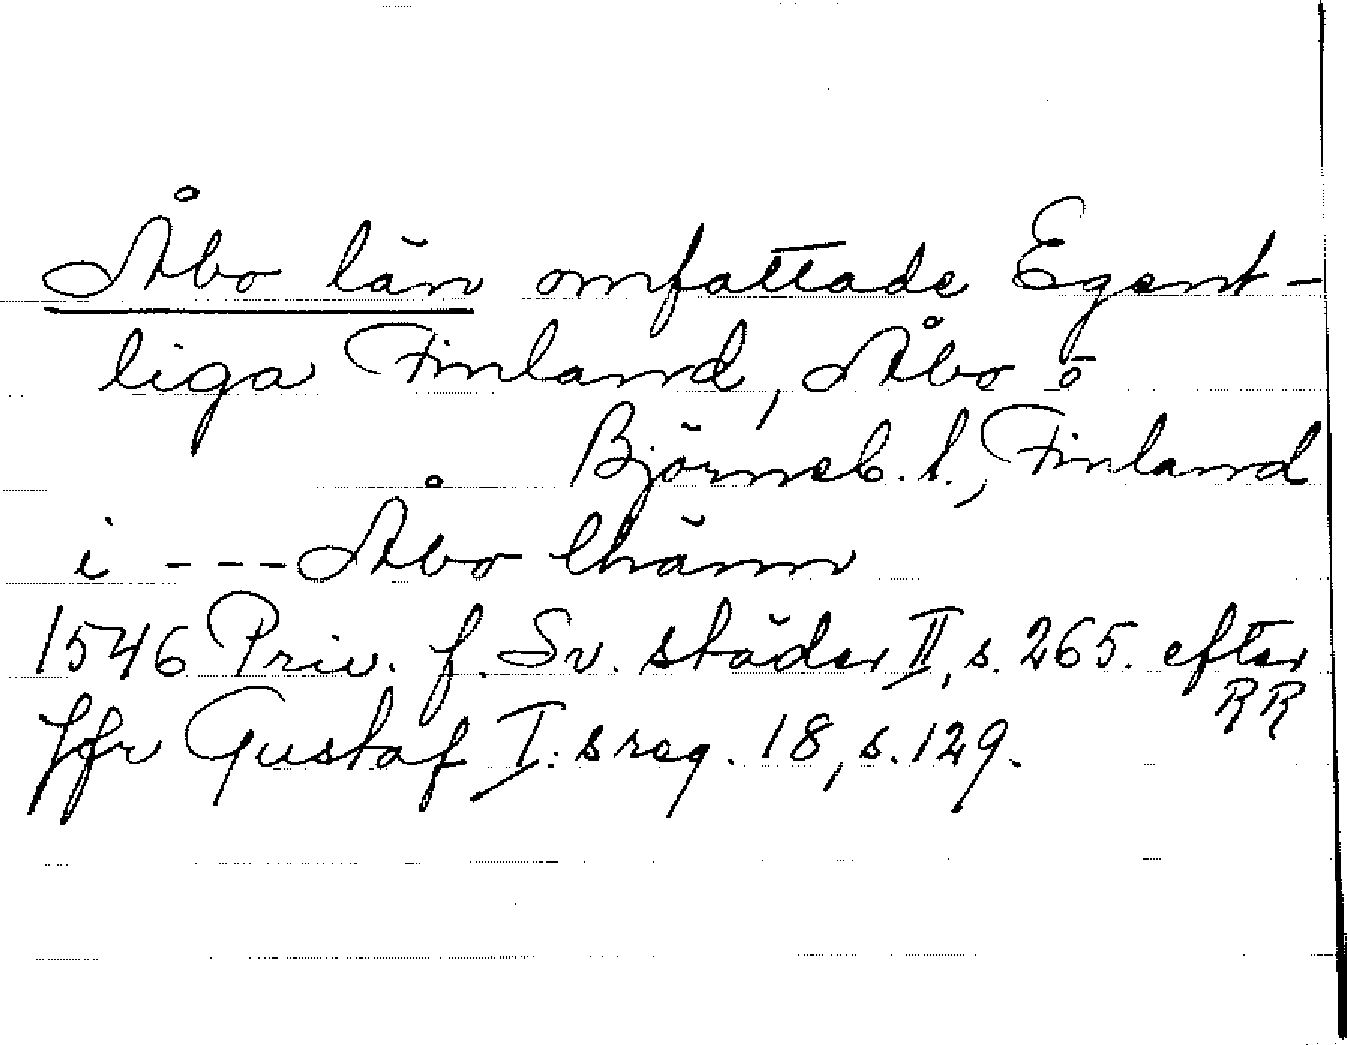 Åbo län omfattade Egent-
liga Finland, Åbo o
Björneb. l., Finland
i --- Åbo lhänn
1546 Priv. f. Sv. städer II, s. 265. efter
RR
Jfr Gustaf I:s reg. 18, s. 129.